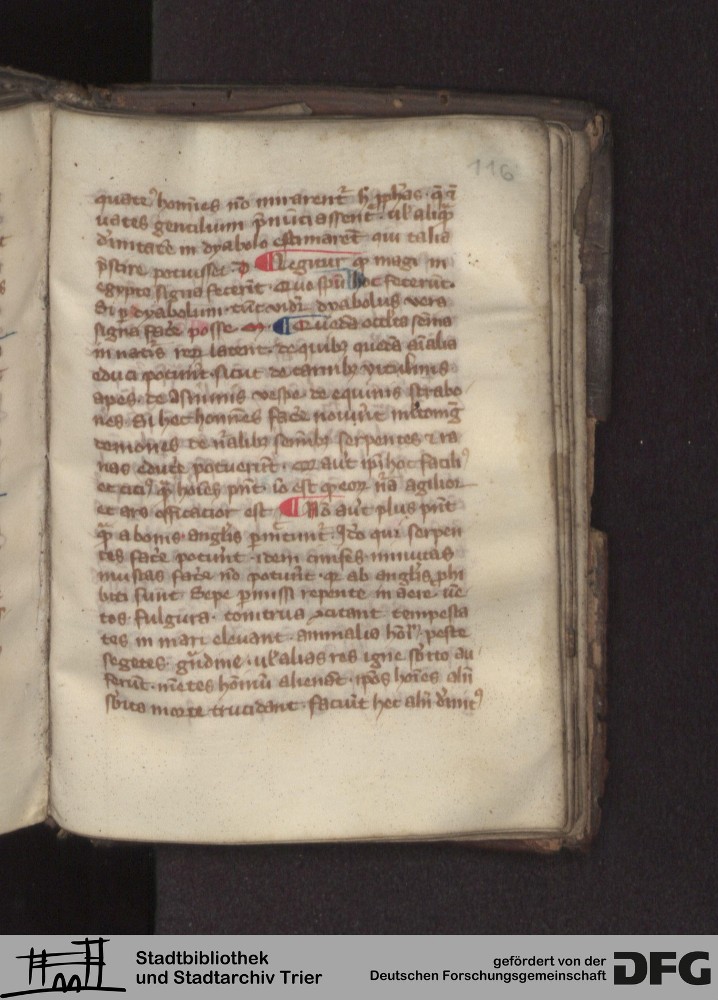 116
quaten9 homies no mirarentr si prophetas q̄ i
uates gentilium p̄nunciassent ul aliqua
diuinitate in dyabolo estimarent qui talia
p̄scire potuisset D Legitur qp magi in
egypto signa fecerūt Quo spū hoc fecerūt
Si p dyabolum tūc vidr dyabolus vera
signa face posse M Queda occlta semīa
in natis rerp latent de quibz queda aīalia
educi potūnt sicut de carnibz vitulinis
apes de Asininis vespe de equinis strabo
nes Si hec homīes face nouūt
demones de nālibz semībz serpentes ⁊ ra
nas educe potuerūt aut ipi hoc facili9
et citi9 qͣ hoīes pn̄t Io est qp eorp nā agilior
et ars efficacior est No aut plus pn̄t
qͣ a bonis angłis pmittūnt Ico qui serpen
tes face potūnt idem cinifes minutas
muscas face no potūnt qp ab angłis phi
biti sunt Sepe pmissi repente in aere ue
tos fulgura tonitrua ꝯcitant tempesta
tes in mari eleuant animalia peste
segetes grādine ul alias res igne sbito au
ferūt mētes homīū alienāt ipos hoīes alii
sbita morte trucidant faciūt hec alii diuint9
Stadtbibliothek
und Stadtarchiv Trier
gefördert von der
Deutschen Forschungsgemeinschaft
DFG